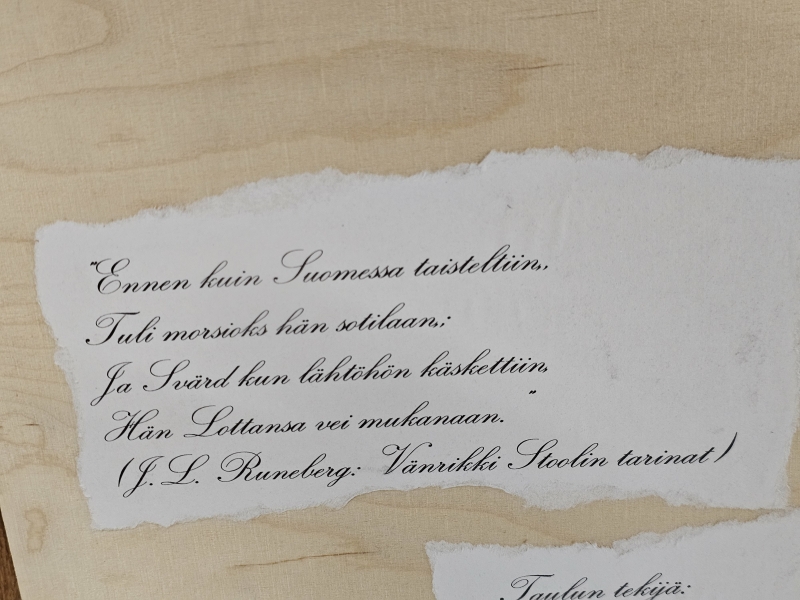 "Ennen kuin Suomessa taisteltiin,,
Tuli morsioks hän sotilaan,:
Ja Svärd kun lähtöhön käskettiin,
Hän Lottansa vei mukanaan. "
(J. L. Runeberg: Vänrikki Stoolin tarinat)
Taulun tekijä: